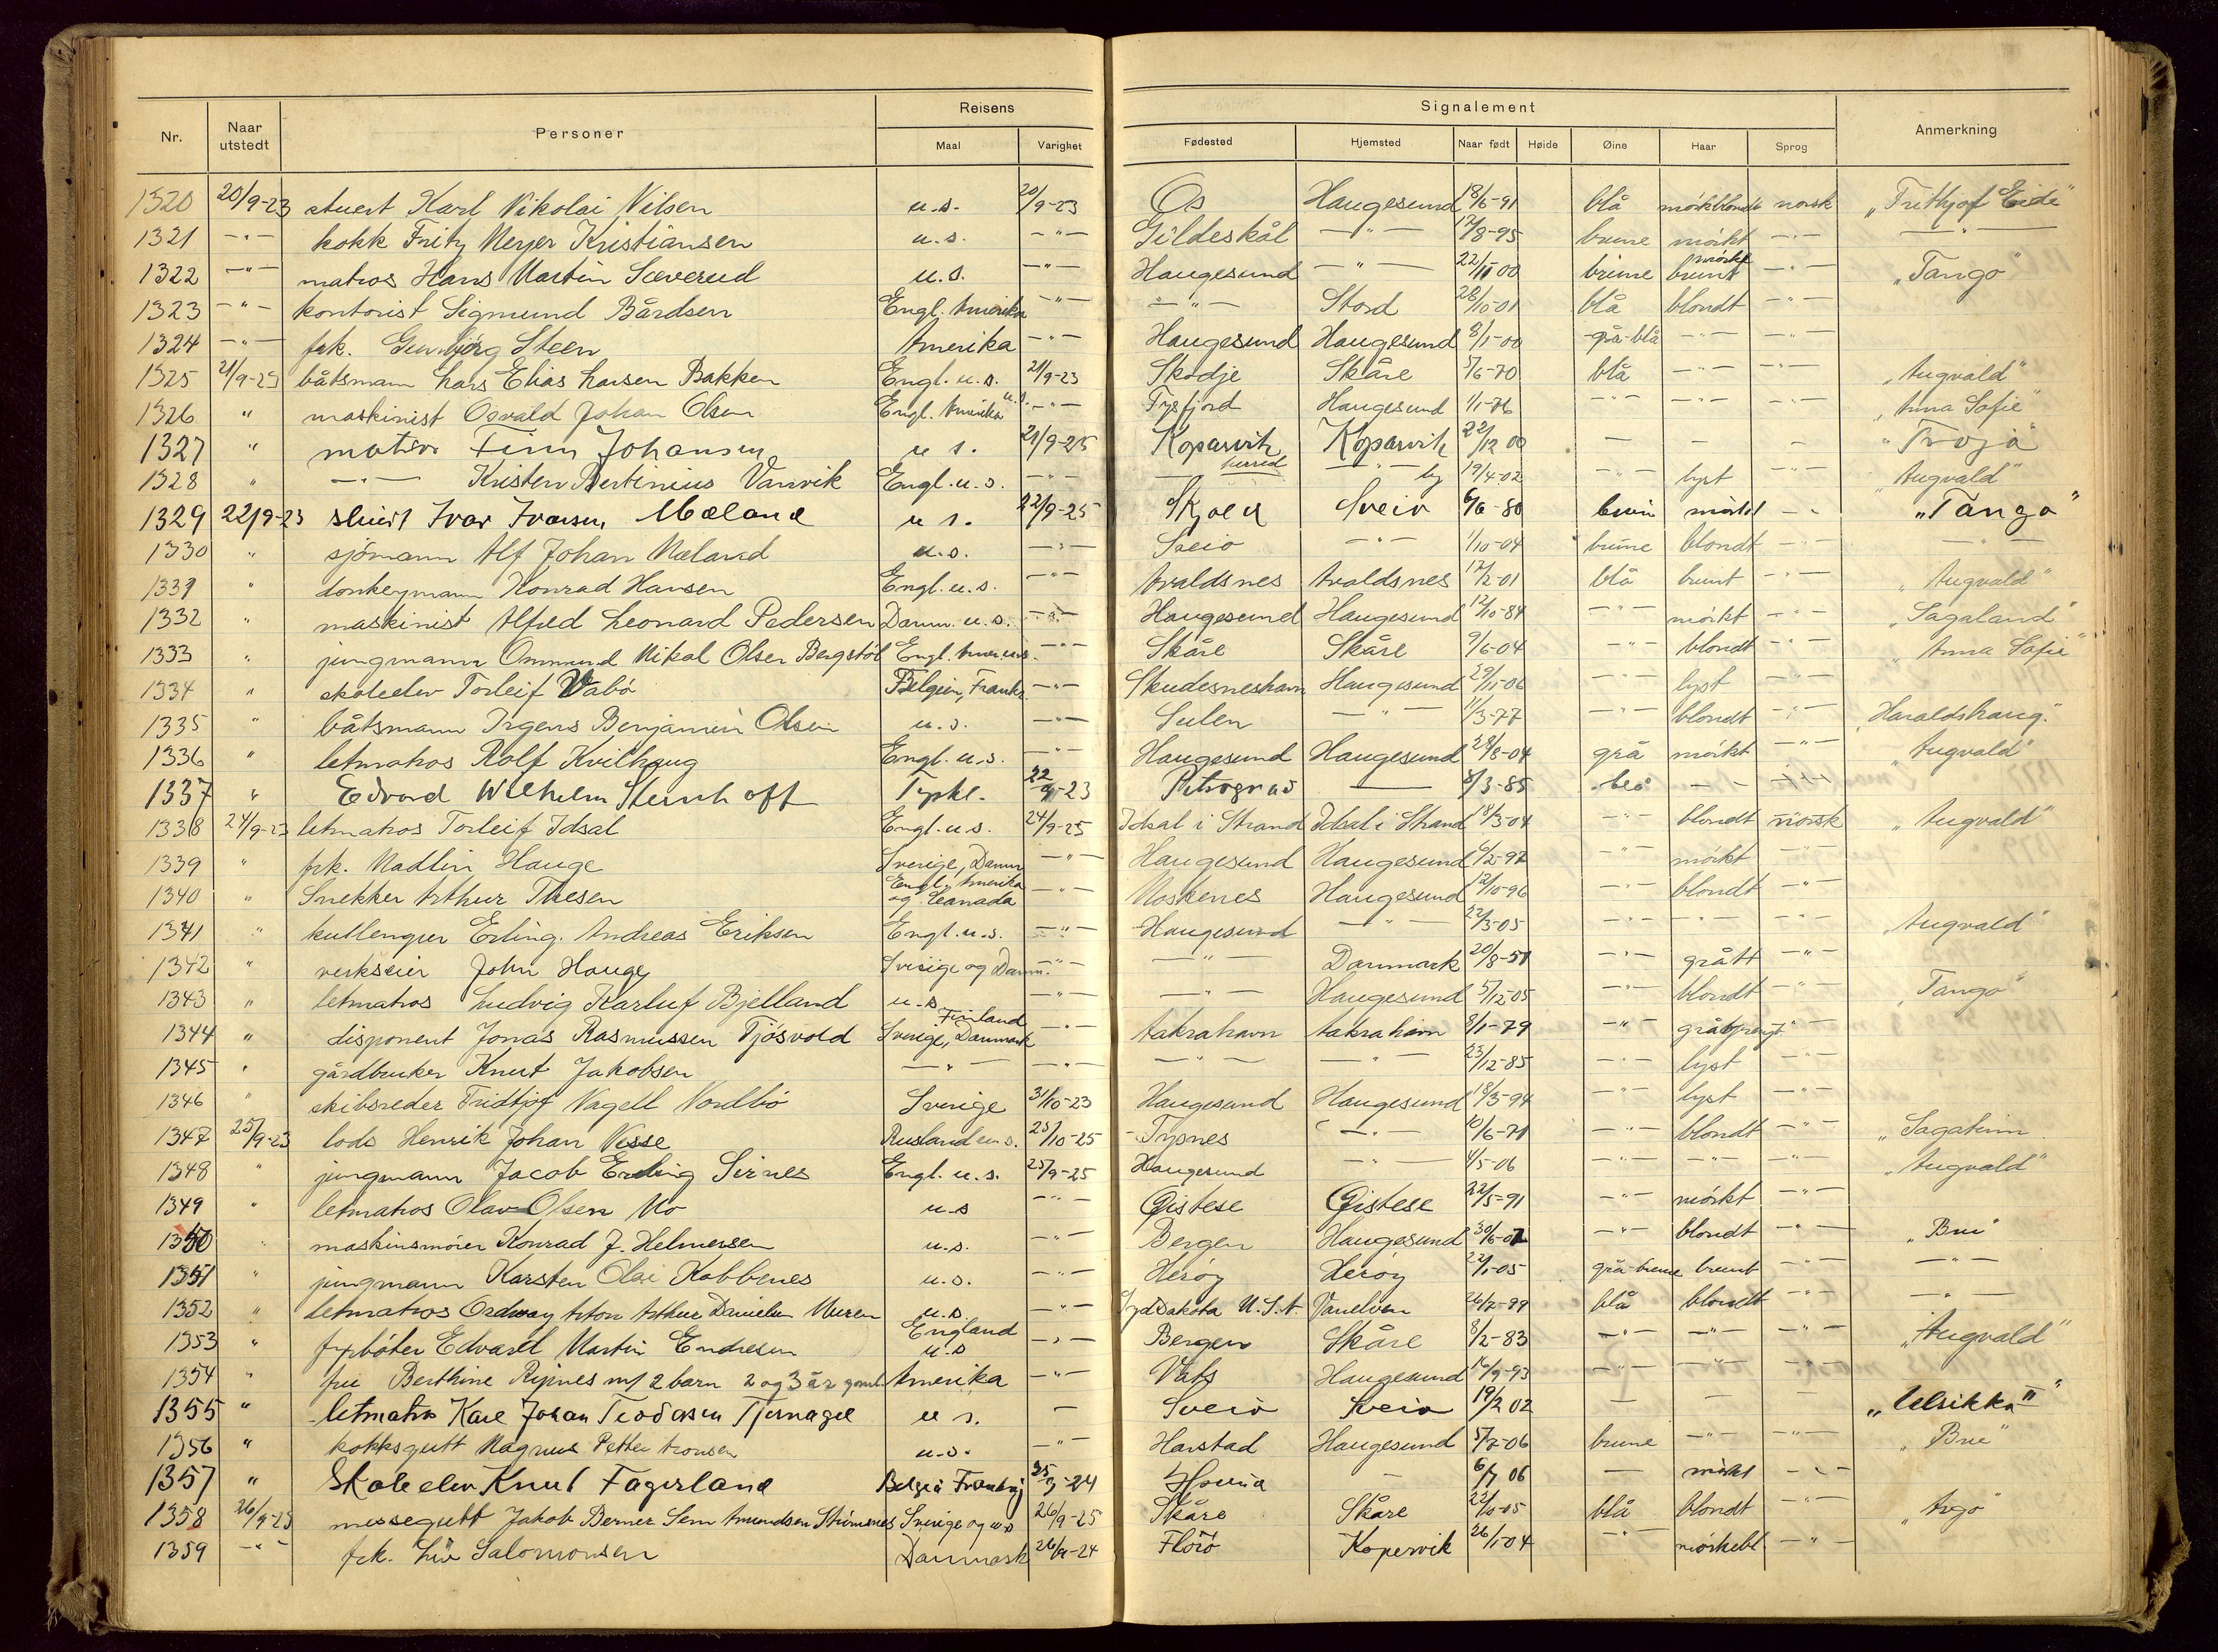 Reisens
Signalement
Nr. Naar utstedt Personer Maal Varighet Fødested Hjemsted Naar født Høide Øine Haar Sprog Anmerkning
1320 20/9-23 stuert Karl Nikolai Nilsen u.s. 20/9-23 Os Haugesund 18/6-91 blå mörkblondt norsk "Frithjof Eide"
1321 -"- kokk Fritz Meyer Kristiansen u.s. -"- Gildeskål -"- 17/8-95 brune mörkt -"- -"-
1322 -"- matros Hans Martin Sæverud u.s. -"- Haugesund -"- 22/11 00 brune mörke brunt -"- "Tango"
1323 -"- kontorist Sigmund Bårdsen Engl. Amerika -"- -"- Stord 28/10-01 blå blondt -"-
1324 -"- frk. Gunbjörg Steen Amerika -"- Haugesund Haugesund 8/1-00 grå-blå -"- -"-
1325 21/9-23 båtsmann Lars Elias Larsen Bakken Engl. u.s. 21/9-23 Skodje Skåre 5/6-70 blå -"- -"- "Augvald"
1326 " maskinist Osvald Johan Olsen Engl. Amerika u.s. -"- Tysfjord Haugesund 1/1-76 -"- -"- -"- "Anna Sofie"
1327 " matros Finn Johansen u s. 21/9-25 Kopervik Kopervik 22/12 00 - - - "Troja"
1328 " -"- Kristen Bertinius Vanvik Engl. u.s. -"- -"- herred -"- by 19/4-02 -"- lyst -"- "Augvald"
1329 22/9-23 stuert Ivar Ivarsen Mæland u s. 22/9-25 Skjold Sveio 6/6-80 brun mörkt -"- "Tango"
1330 " sjömann Alf Johan Mæland u.s. -"- Sveio -"- 1/10-04 brune blondt -"- -"-
1331 " donkeymann Konrad Hansen Engl. u.s. -"- Avaldsnes Avaldsnes 17/2-01 blå brunt -"- "Augvald"
1332 " maskinist Alfred Leonard Pedersen Danm. u.s. -"- Haugesund Haugesund 12/10-84 -"- mörkt -"- "Sagaland"
1333 " jungmann Ommund Nikal Olsen Bergstöl Engl. Amer. u.s. -"- Skåre Skåre 9/6-04 -"- blondt -"- "Anna Sofie"
1334 " skoleelev Torleif Vabö Belgien, Frankr. -"- Skudesneshavn Haugesund 29/11-06 -"- lyst -"-
1335 " båtsmann Irgens Benjamin Olsen u.s. -"- Sulen -"- 11/3-77 -"- blondt -"- "Haraldshaug"
1336 " letmatros Rolf Kvilhaug Engl. u.s. -"- Haugesund Haugesund 28/8-04 grå mörkt -"- "Augvald"
1337 " Edvard Wilhelm Sternhoff Tyskl. 22/9-23 Petrograd - 8/3-85 blå - -"-
1338 24/9-23 letmatros Torleif Idsal Engl. u.s. 24/9-25 Idsal i Strand Idsal i Strand 18/3-04 -"- blondt norsk "Augvald"
1339 " frk. Madlin Hauge Sverige, Danm. -"- Haugesund Haugesund 6/2-97 -"- mörkt -"-
1340 " Snekker Arthur Thesen Engl. Amerika og Canada -"- Moskenes Haugesund 12/10-96 -"- blondt -"-
1341 " kullemper Erling Andreas Eriksen Engl. u.s. -"- Haugesund -"- 22/3-05 -"- -"- -"- "Augvald"
1342 " verkseier John Hauge Sverige og Danm. -"- -"- Danmark 20/8-51 -"- grått -"-
1343 " letmatros Ludvig Karluf Bjelland u.s -"- -"- Haugesund 5/12-05 -"- blondt -"- "Tango"
1344 " disponent Jonas Rasmussen Tjösvold Sverige, Danmark Finland -"- Aakrahavn Aakrahavn 8/1-79 -"- gråsprengt -"-
1345 " gårdbruker Knut Jakobsen -"- -"- -"- -"- 23/12-85 -"- lyst -"-
1346 " skibsreder Fridtjof Nagell Nordbö Sverige 31/10-23 Haugesund Haugesund 18/3-94 -"- lyst -"-
1347 25/9-23 lods Henrik Johan Næsse Rusland u.s. 25/10-25 Tysnes -"- 10/6-71 -"- blondt -"- "Sagatinn
1348 " jungmann Jacob Erling Sirnes Engl. u.s. 25/9-25 Haugesund -"- 4/5-06 -"- -"- -"- "Augvald"
1349 " letmatros Olav Olsen Mo u.s -"- Øistese Øistese 22/5-91 -"- mörkt -"-
1350 " maskinsmörer Konrad J. Helmersen u.s. -"- Bergen Haugesund 30/6-02 -"- blondt -"- "Bru"
1351 " jungmann Karsten Olai Kobbenes u.s. -"- Heröy Heröy 22/1-05 grå-brune brunt -"- -"-
1352 " letmatros Ordway Anton Arthur Danielsen Muren u.s. -"- Syd Dakota U.S.A. Vanelven 26/7-99 blå blondt -"- -"-
1353 " fyrböter Edvard Martin Endresen England u.s -"- Bergen Skåre 8/2-83 -"- -"- -"- "Augvald"
1354 " fru Berthine Ripnes m/ 2 barn 2 og 3 år gaml Amerika -"- Vats Haugesund 16/9-93 -"- -"- -"-
1355 " letmatros Karl Johan Teodorsen Tjernagel u s. - Sveio Sveio 19/2 02 - - - "Ulrikka II"
1356 " kokksgutt Magnus Petter Aronsen u.s. -"- Harstad Haugesund 5/7-06 brune -"- -"- "Bru"
1357 " Skoleelev Knut Fagerland Belgia Frankrig 25/9-24 - 6/7 06 - mörkt -"-
1358 26/9-23 messegutt Jakob Berner Sem Amundsen Strömsnes Sverige og u.s 26/9-25 Skåre Skåre 22/10-05 blå blondt -"- "Argo"
1359 -"- frk. Liv Salomonsen Danmark 26/9-24 Florö Kopervik 26/1-04 -"- mörkebl -"-